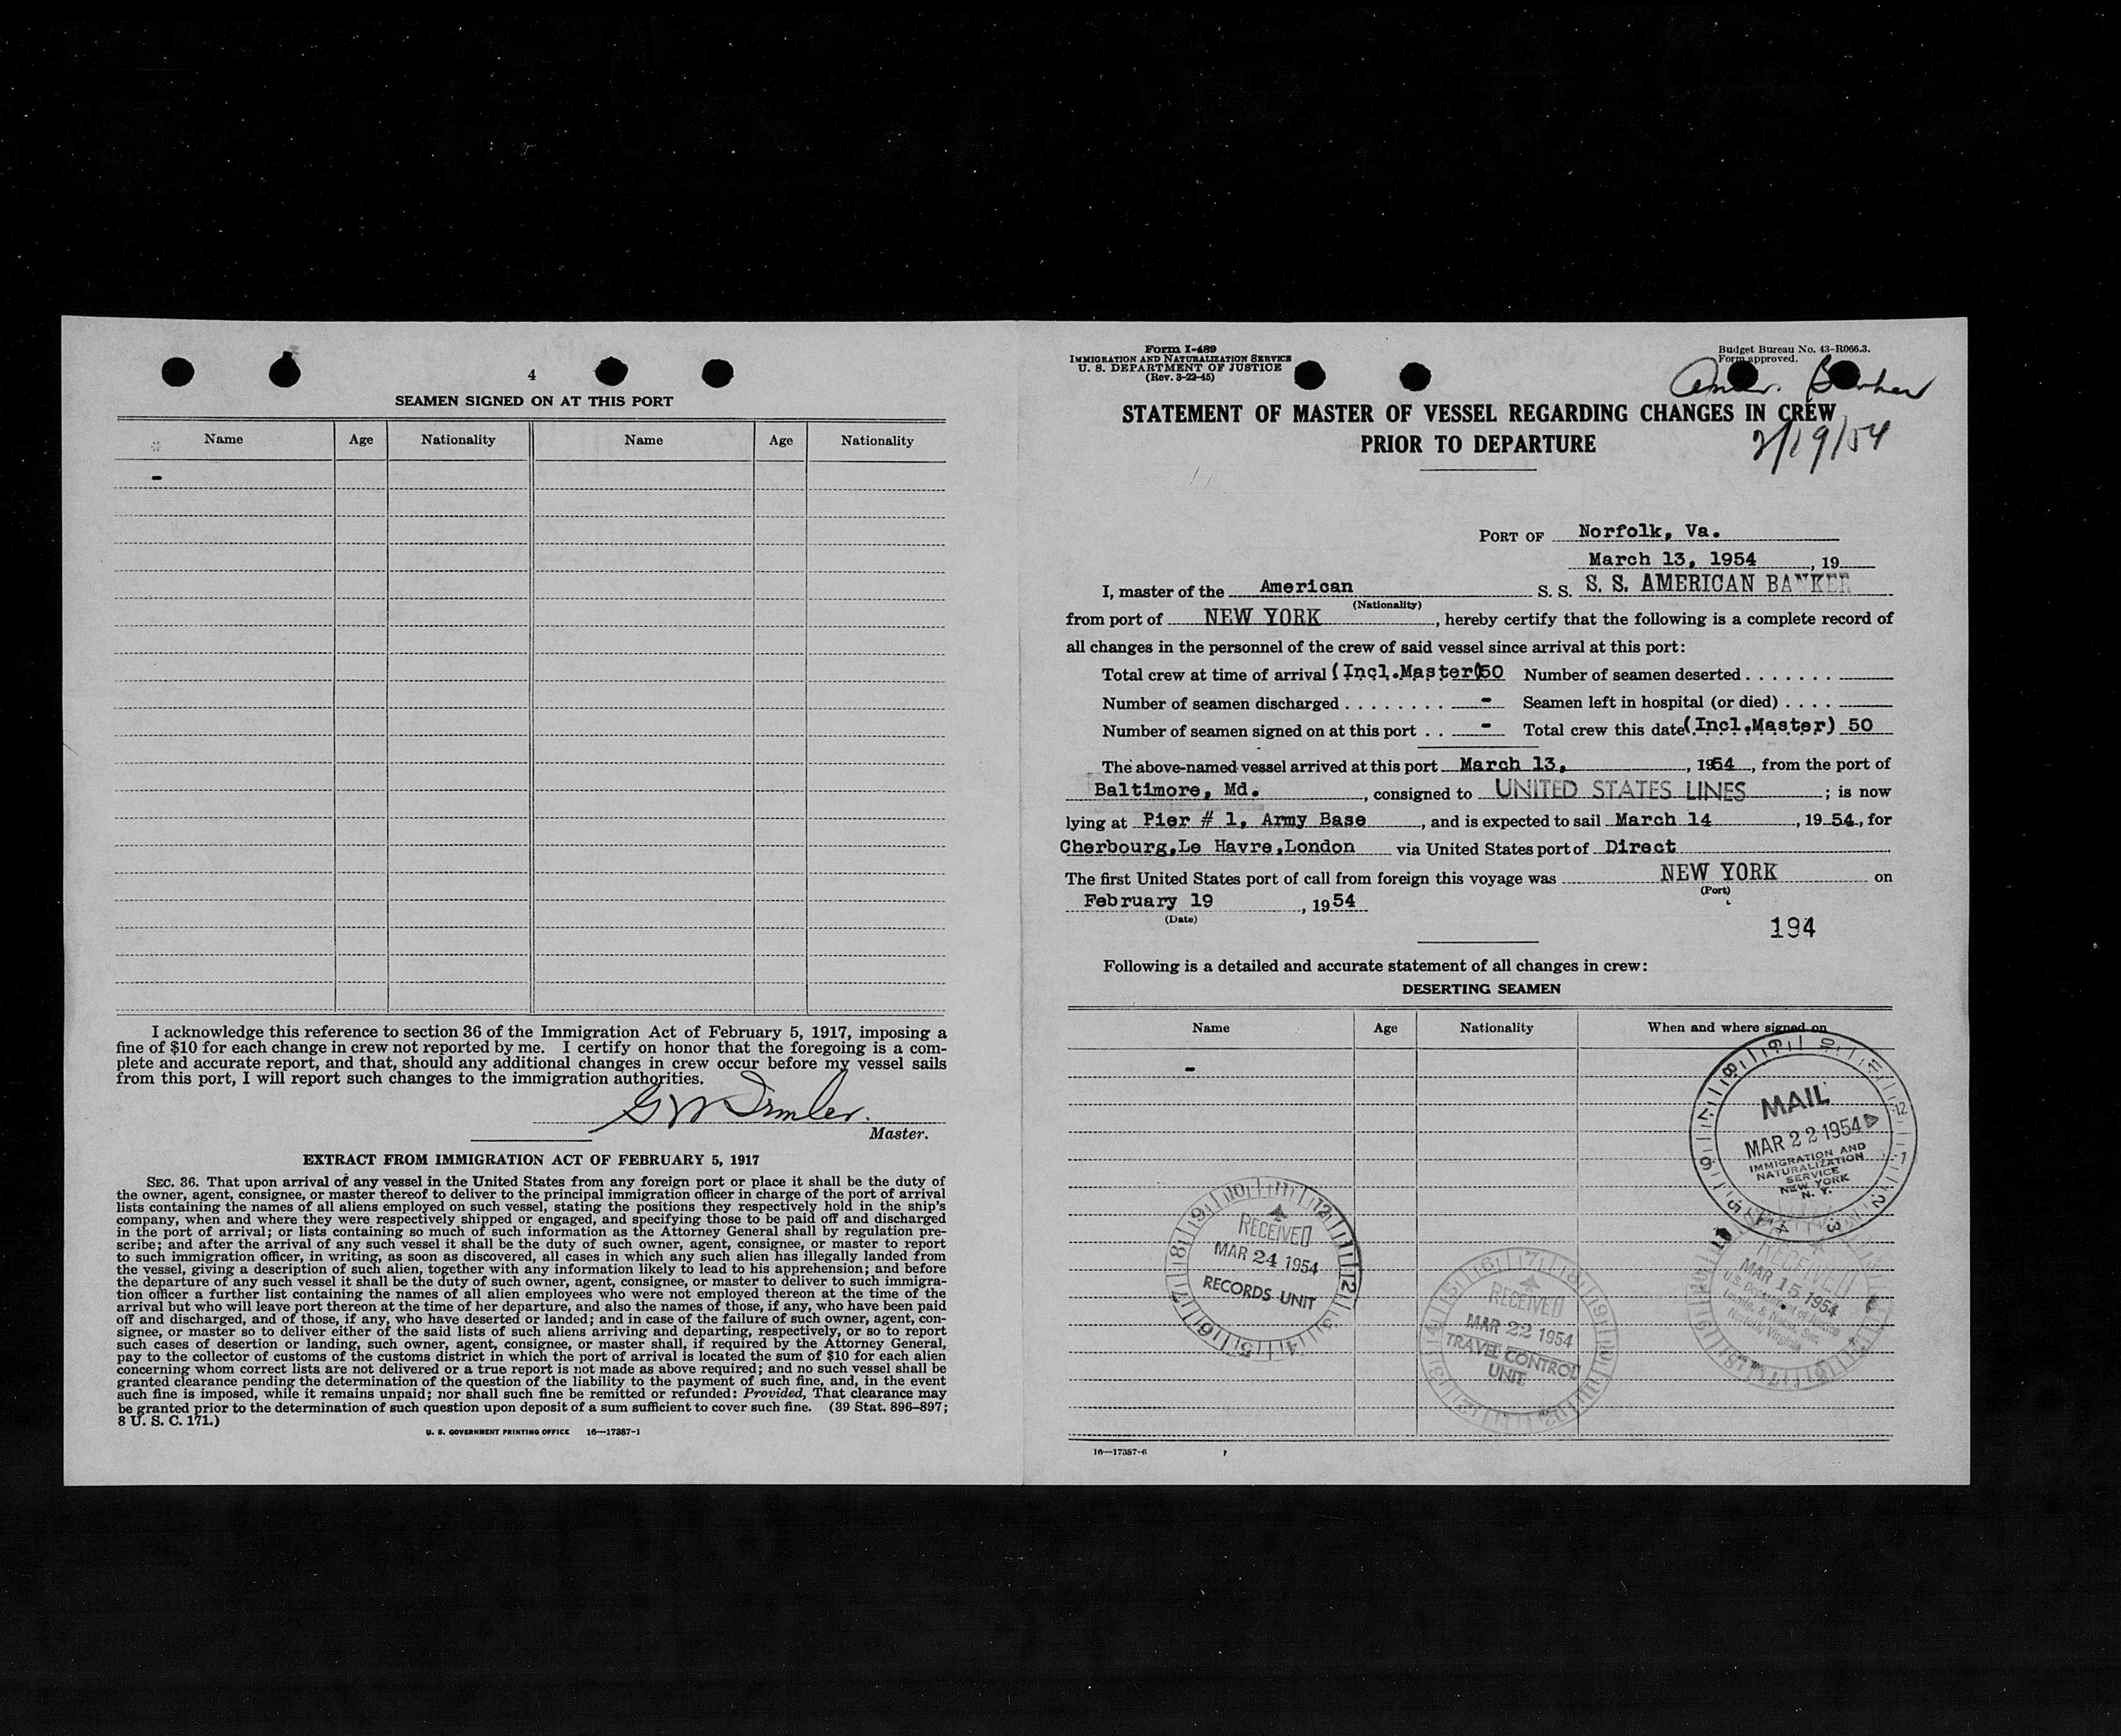 4
SEAMEN SIGNED ON AT THIS PORT
Name Age Nationality Name Age Nationality
-
I acknowledge this reference to section 36 of the Immigration Act of February 5, 1917, imposing a
fine of $10 for each change in crew not reported by me. I certify on honor that the foregoing is a com-
plete and accurate report, and that, should any additional changes in crew occur before my vessel sails
from this port, I will report such changes to the immigration authorities.
Master.
EXTRACT FROM IMMIGRATION ACT OF FEBRUARY 5, 1917
SEC. 36. That upon arrival of any vessel in the United States from any foreign port or place it shall be the duty of
the owner, agent, consignee, or master thereof to deliver to the principal immigration officer in charge of the port of arrival
lists containing the names of all aliens employed on such vessel, stating the positions they respectively hold in the ship's
company, when and where they were respectively shipped or engaged, and specifying those to be paid off and discharged
in the port of arrival; or lists containing so much of such information as the Attorney General shall by regulation pre-
scribe; and after the arrival of any such vessel it shall be the duty of such owner, agent, consignee, or master to report
to such immigration officer, in writing, as soon as discovered, all cases in which any such alien has illegally landed from
the vessel, giving a description of such alien, together with any information likely to lead to his apprehension; and before
the departure of any such vessel it shall be the duty of such owner, agent, consignee, or master to deliver to such immigra-
tion officer a further list containing the names of all alien employees who were not employed thereon at the time of the
arrival but who will leave port thereon at the time of her departure, and also the names of those, if any, who have been paid
off and discharged, and of those, if any, who have deserted or landed; and in case of the failure of such owner, agent, con-
signee, or master so to deliver either of the said lists of such aliens arriving and departing, respectively, or so to report
such cases of desertion or landing, such owner, agent, consignee, or master shall, if required by the Attorney General,
pay to the collector of customs of the customs district in which the port of arrival is located the sum of $10 for each alien
concerning whom correct lists are not delivered or a true report is not made as above required; and no such vessel shall be
granted clearance pending the determination of the question of the liability to the payment of such fine, and, in the event
such fine is imposed, while it remains unpaid; nor shall such fine be remitted or refunded: Provided, That clearance may
be granted prior to the determination of such question upon deposit of a sum sufficient to cover such fine. (39 Stat. 896-897;
8 U. S. C. 171.)
U. S. GOVERNMENT PRINTING OFFICE 16—17387-1
Form I-489
IMMIGRATION AND NATURALIZATION SERVICE
U. S. DEPARTMENT OF JUSTICE
(Rev. 3-22-45)
Budget Bureau No. 43-R066.3.
Form approved.
Amer. Banker
2/19/54
STATEMENT OF MASTER OF VESSEL REGARDING CHANGES IN CREW
PRIOR TO DEPARTURE
PORT OF Norfolk, Va.
March 13, 1954, 19
I, master of the American S. S. S. S. AMERICAN BANKER
(Nationality)
from port of NEW YORK, hereby certify that the following is a complete record of
all changes in the personnel of the crew of said vessel since arrival at this port:
Total crew at time of arrival (Incl.Master(50 Number of seamen deserted
Number of seamen discharged - Seamen left in hospital (or died)
Number of seamen signed on at this port - Total crew this date (Incl.Master) 50
The above-named vessel arrived at this port March 13, , 1954, from the port of
Baltimore, Md., consigned to UNITED STATES LINES; is now
lying at Pier # 1, Army Base, and is expected to sail March 14, 1954, for
Cherbourg,Le Havre,London via United States port of Direct
The first United States port of call from foreign this voyage was NEW YORK on
(Port)
February 19, 1954
(Date)
194
Following is a detailed and accurate statement of all changes in crew:
DESERTING SEAMEN
Name Age Nationality When and where signed on
-
MAIL
MAR 22 1954
IMMIGRATION AND
NATURALIZATION
SERVICE
NEW YORK
N. Y.
RECEIVED
MAR 24 1954
RECORDS UNIT
RECEIVED
MAR 22 1954
TRAVEL CONTROL
UNIT
RECEIVED
MAR 15 1954
U.S. Department of Justice
Immig. & Natur. Ser.
Norfolk, Virginia
16—17387-6